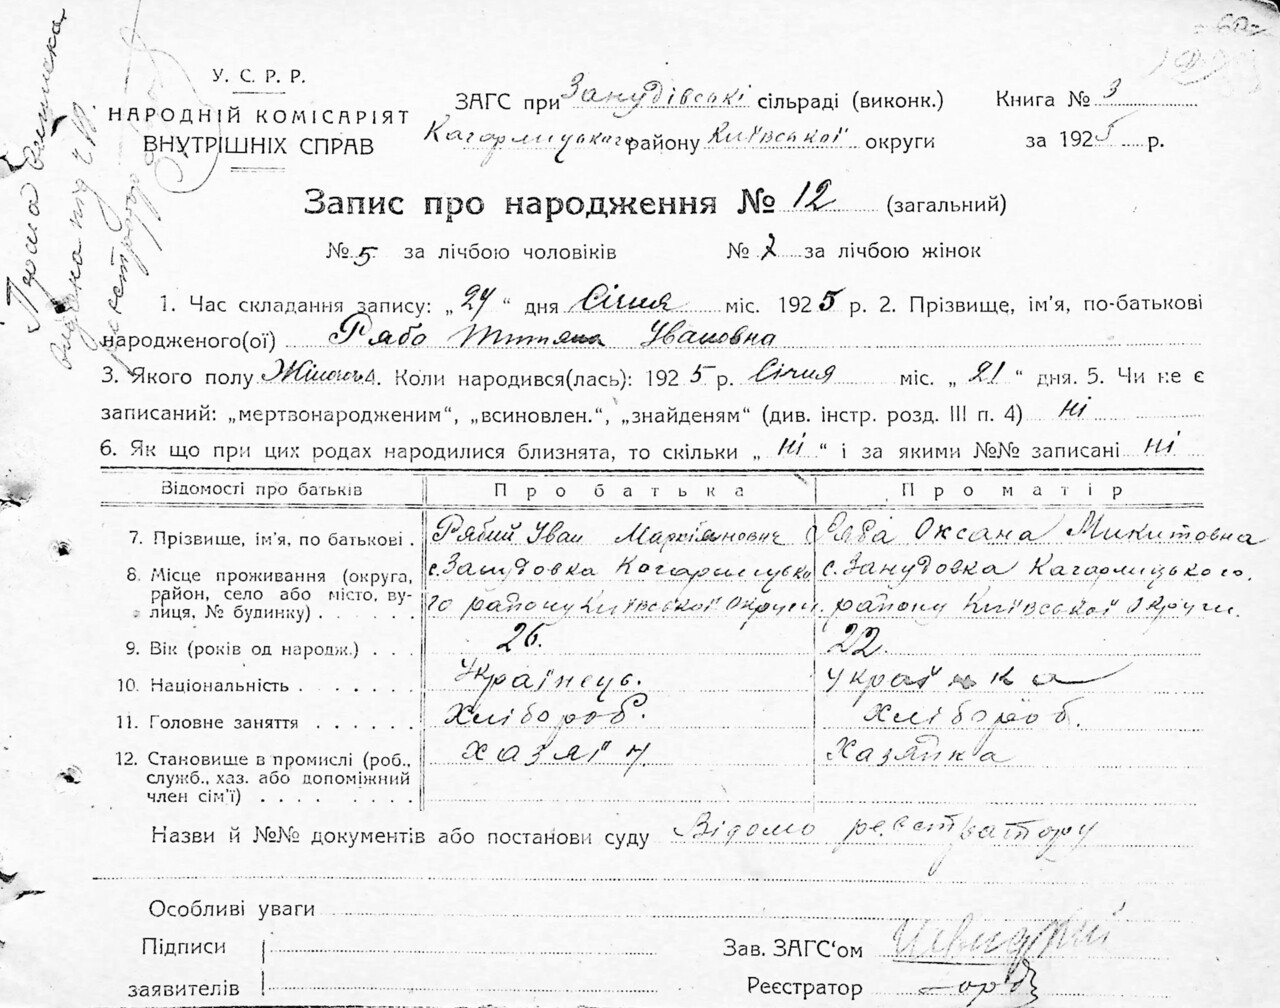 Перша виписка
видана під ч.
У. С. Р. Р.
НАРОДНІЙ КОМІСАРІЯТ
ВНУТРІШНІХ СПРАВ
ЗАГС при Занудівські сільраді (виконк.) Книга № 3
Кагарлицького району Київської округи за 1925 р.
Запис про народження № 12 (загальний)
№ 5 за лічбою чоловіків № 7 за лічбою жінок
1. Час складання запису: „24“ дня Січня міс. 1925 р. 2. Прізвище, ім'я, по-батькові
народженого(ої) Рябо Тттяна Ивановна
3. Якого полу Жіночого 4. Коли народився(лась): 1925 р. Січня міс. „21“ дня. 5. Чи не є
записаний: „мертвонародженим“, „всиновлен.“, „знайденям“ (див. інстр. розд. III п. 4) ні
6. Як що при цих родах народилися близнята, то скільки „ні“ і за якими №№ записані ні
Відомості про батьків Про батька Про матір
7. Прізвище, ім'я, по батькові . Рябий Иван Маркіянович Ряба Оксана Микитовна
8. Місце проживання (округа, район, село або місто, вулиця, № будинку) с. Занудовка Кагарлицько
го району Київської Округи с. Занудовка Кагарлицького
району Київської Округи.
9. Вік (років од народж.) . . . 26. 22.
10. Національність . . . . . . . Українець. Українка
11. Головне заняття . . . . . . Хлібороб. Хлібороб.
12. Становище в промислі (роб., служб., хаз. або допоміжний член сім'ї) . . . . хазяїн Хазяйка
Назви й №№ документів або постанови суду Відомо реєстратору
Особливі уваги
Підписи
заявителів
Зав. ЗАГС'ом
Реєстратор